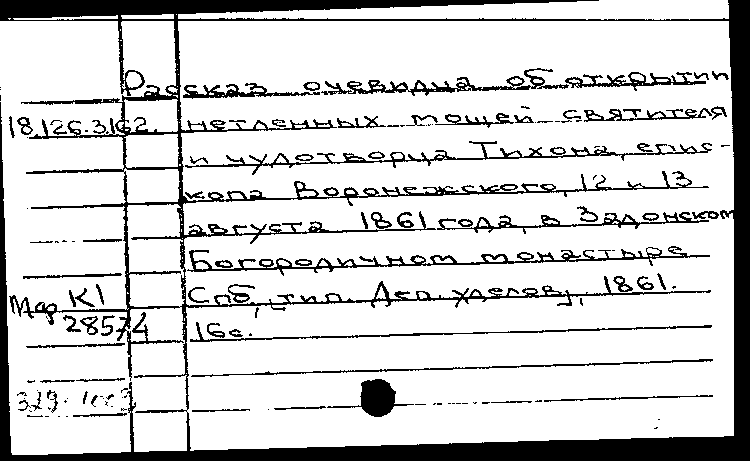 Рассказ очевидца об открытии
18.126.3.162. нетленных мощей святителя
и чудотворца Тихона, епис-
копа Воронежского, 12 и 13
августа 1861 года, в Задонском
Богородичном монастыре
Мф К1 Спб, тип. Деп. уделов, 1861.
28574 16с.